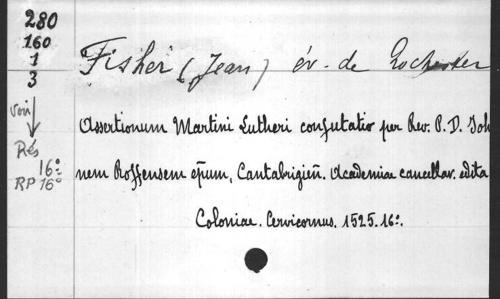 280
160
1
3
voir
Rés
16º
RP 16º
Fisher (Jean) év. de Rochester
Assertionum Martini Lutheri confutatio per Rev. P. D. Joh
nem Roffensem ep̃um, Cantabrigieñ. Academiae cancellar. edita
Coloniae. Cervicornus. 1525. 16º.